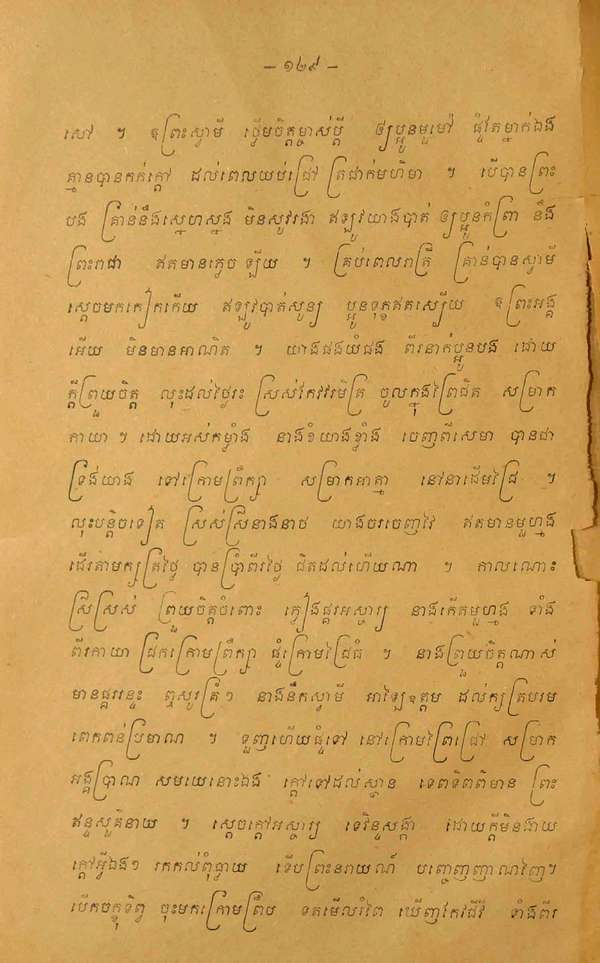 – ១២៩ –
សៅ ។ ឱព្រះស្វាមី ធ្វើមចិត្តម្ចាស់ប្ដី ឲ្យប្អូនមួម៉ៅ ផ្ទំតែម្នាក់ឯង
គ្មានបានកក់ក្ដៅ ដល់ពេលយប់ជ្រៅ ត្រជាក់មហិមា ។ បើបានព្រះ
បង គ្រាន់នឹងស្នេហស្នង មិនសូវរងា ឥឡូវយាងបាត់ ឲ្យប្អូនកំព្រា នឹង
ព្រះរាជា ឥតមានភ្លេច ឡើយ ។ គ្រប់ពេលរាត្រី គ្រាន់បានស្វាមី
ស្ដេចមកកៀកកើយ ឥឡូវបាត់សូន្យ ប្អូនទុក្ខឥតស្បើយ ឱព្រះអង្គ
អើយ មិនមានអាណិត ។ យាងផងយំផង ពីរនាក់ប្អូនបង ដោយ
ក្ដីព្រួយចិត្ត លុះដល់ថ្ងៃរះ ស្រស់កែវវរមិត្រ ចូលក្នុងព្រៃជិត សម្រាក
កាយា ។ ដោយអស់កម្លាំង នាងខំយាងខ្លាំង ចេញពីសេមា បានជា
ទ្រឹងយាង ទៅក្រោមព្រឹក្សា សម្រាកអាត្មា នៅនាដើមជ្រៃ ។
លុះបន្តិចទៀត ស្រស់ស្រីនាងនាថ យាងចរចេញវៃ ឥតមានមួហ្មង
ដើរតាមក្បួត្រថ្ងៃ បានប្រាំពីរថ្ងៃ ជិតដល់ហើយណា ។ កាលណោះ
ស្រីស្រស់ ព្រួយចិត្តចំពោះ ភ្លៀងផ្គរអស្ចារ្យ នាងកើតមួហ្មង ទាំង
ពីរកាយា ជ្រកក្រោមព្រឹក្សា ផ្ទំក្រោមជ្រៃធំ ។ នាងព្រួយចិត្តណាស់
មានផ្គររន្ទះ ឮសូរគ្រាំៗ នាងនឹកស្វាមី អាទៃឧត្ដម ដល់ក្សត្របរម
ពេកពន់ប្រមាណ ។ ទួញហើយផ្ទំទៅ នៅក្រោមព្រៃជ្រៅ សម្រាក
អង្គប្រាណ សមយេនោះឯង ក្ដៅទៅដល់ស្ថាន ទេពទិពពិមាន ព្រះ
ឥន្ទសួគ៌នាយ ។ ស្ដេចក្ដៅអស្ចារ្យ ទេវិន្ទសង្កា ដោយក្ដីមិនងាយ
ក្ដៅអ្វីឯងៗ រកកល់ពុំធ្លាយ ទើបព្រះនរាយណ៍ បញ្ចេញញាណវៃញ។
បើកចក្ខុទិព្វ ចុះមកក្រោមព្រឹប ទតមើលរំពៃ ឃើញកែវជីវី ទាំងពីរ